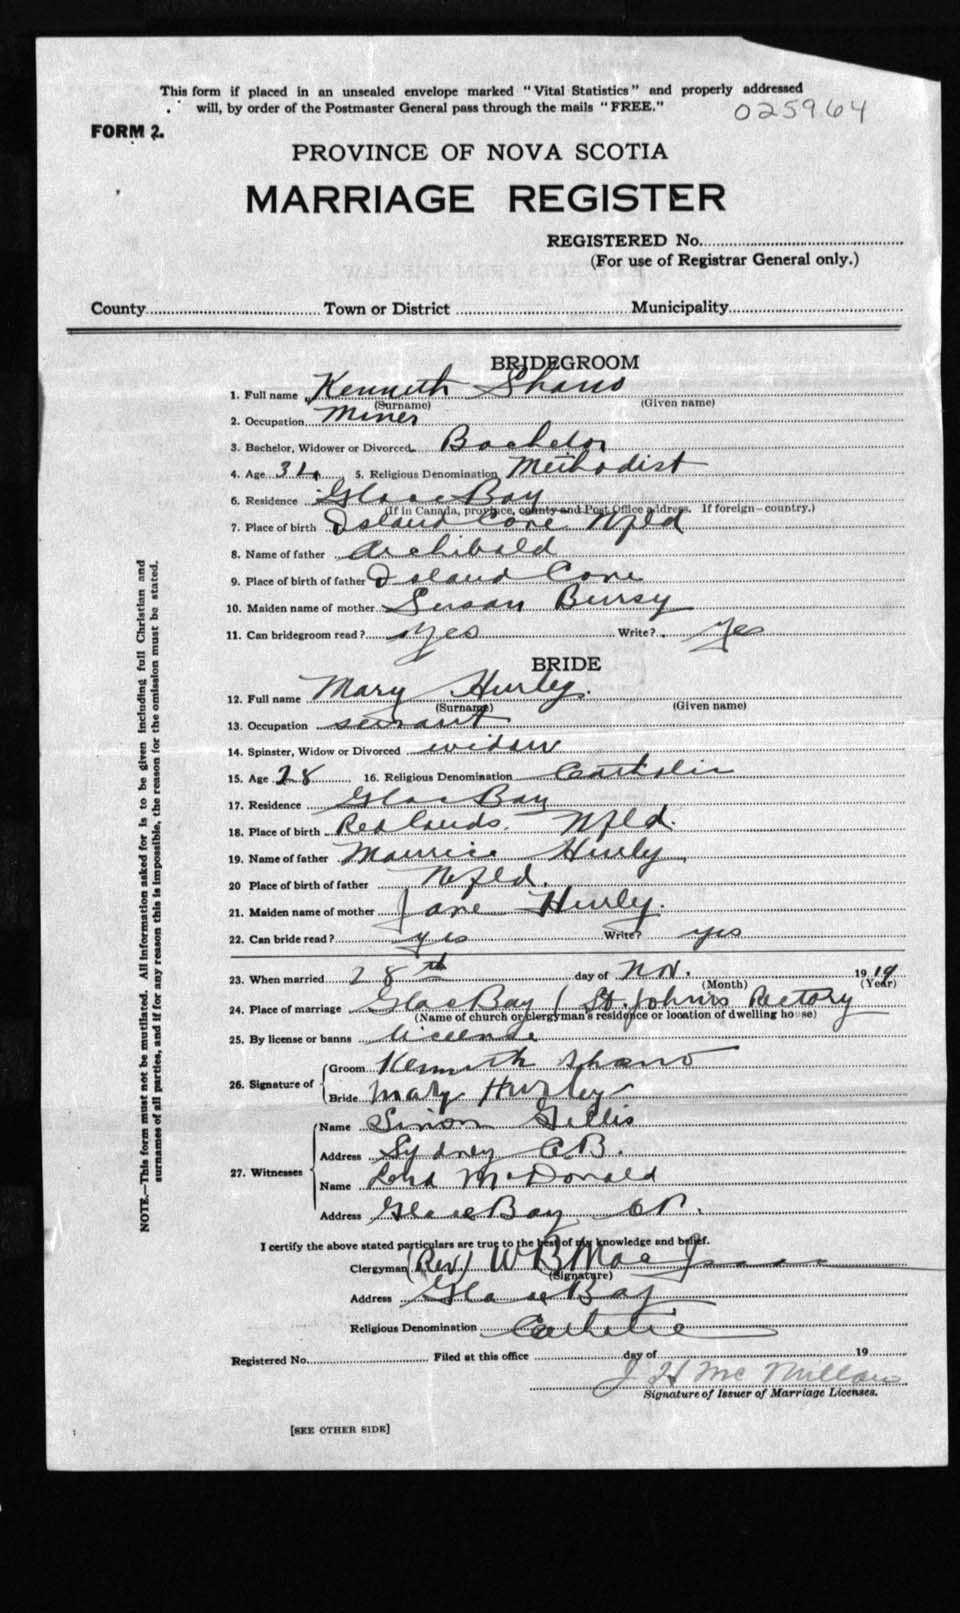 This form if placed in an unsealed envelope marked "Vital Statistics" and properly addressed
will, by order of the Postmaster General pass through the mails "FREE."
025964
FORM 2.
PROVINCE OF NOVA SCOTIA
MARRIAGE REGISTER
REGISTERED No.
(For use of Registrar General only.)
County Town or District Municipality
BRIDEGROOM
1. Full name Kenneth Shano
(Surname) (Given name)
2. Occupation Miner
3. Bachelor, Widower or Divorced Bachelor
4. Age 34 5. Religious Denomination Methodist
6. Residence Glace Bay
(If in Canada, province, county and Post Office address. If foreign - country.)
7. Place of birth Island Cove Nfld
8. Name of father Archibald
9. Place of birth of father Island Cove
10. Maiden name of mother Susan Bursy
11. Can bridegroom read? Yes Write? Yes
BRIDE
12. Full name Mary Hurley.
(Surname) (Given name)
13. Occupation servant
14. Spinster, Widow or Divorced widow
15. Age 28 16. Religious Denomination Catholic
17. Residence Glace Bay
18. Place of birth Redlands. Nfld.
19. Name of father Maurice Hurly
20 Place of birth of father Nfld.
21. Maiden name of mother Jane Hurly.
22. Can bride read? yes Write? yes
23. When married 28th day of Nov. 1919
(Month) (Year)
24. Place of marriage Glace Bay / St. John's Rectory
(Name of church or clergyman's residence or location of dwelling house)
25. By license or banns license
26. Signature of Groom Kenneth Shano
Bride Mary Hurley
27. Witnesses Name Simon Gillis
Address Sydney C.B.
Name McDonald
Address Glace Bay
I certify the above stated particulars are true to the best of my knowledge and belief.
Clergyman (Rev) W B MacIsaac
(Signature)
Address Glace Bay
Religious Denomination Catholic
Registered No. Filed at this office day of 19
J H McMillan
Signature of Issuer of Marriage Licenses.
[SEE OTHER SIDE]
NOTE.—This form must not be mutilated. All information asked for is to be given including full Christian and
surnames of all parties, and if for any reason this is impossible, the reason for the omission must be stated.